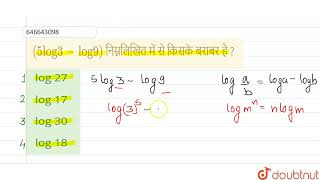 646643098
(5log3 - log9) निम्नलिखित में से किसके बराबर है ?
1 log 27
2 log 17
3 log 30
4 log 18
5 log 3 - log 9
log a/b = log a - log b
log (3)^5 -
log m^n = n log m
doubtnut